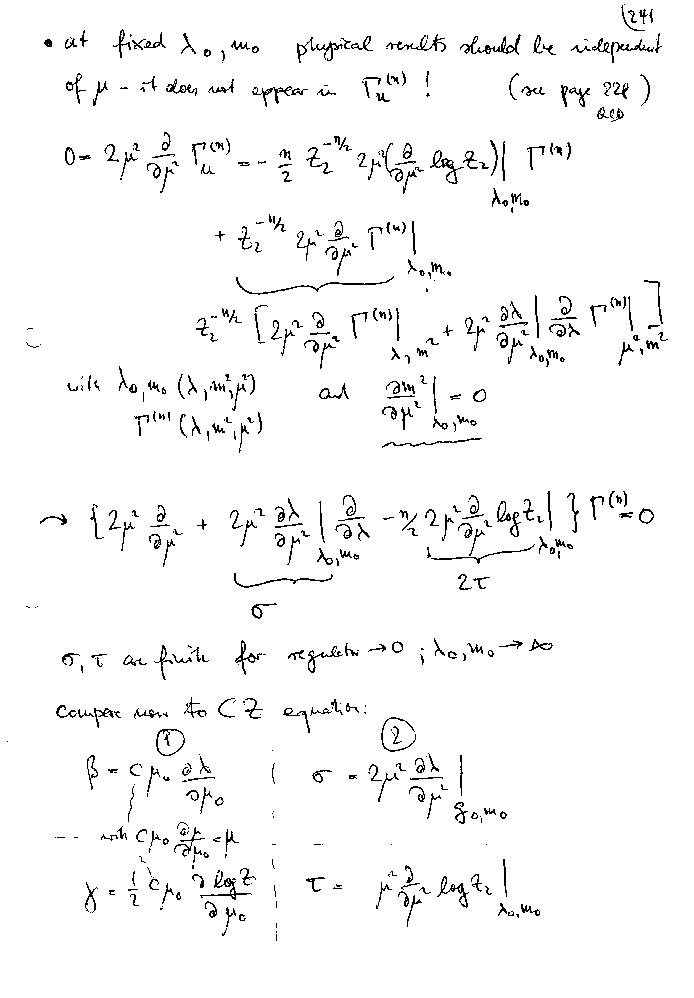 241
• at fixed λ₀, m₀ physical results should be independent
of μ - it does not appear in Γ_u^(n) ! (see page 228)
QED
0 = 2μ² ∂/∂μ² Γ_u^(n) = - n/2 Z₂^(-n/2) 2μ² (∂/∂μ² log Z₂)|_{λ₀,m₀} Γ^(n)
+ Z₂^(-n/2) 2μ² ∂/∂μ² Γ^(n)|_{λ₀,m₀}
Z₂^(-n/2) [2μ² ∂/∂μ² Γ^(n)|_{λ,m²} + 2μ² ∂λ/∂μ²|_{λ₀,m₀} ∂/∂λ Γ^(n)|_{μ²,m²}]
with λ₀, m₀ (λ, m², μ²) and ∂m²/∂μ²|_{λ₀,m₀} = 0
Γ^(n) (λ, m², μ²)
→ {2μ² ∂/∂μ² + 2μ² ∂λ/∂μ²|_{λ₀,m₀} ∂/∂λ - n/2 2μ² ∂/∂μ² log Z₂|_{λ₀,m₀}} Γ^(n) = 0
σ 2τ
σ, τ are finite for regulator → 0 ; λ₀, m₀ → ∞
compare now to CZ equation:
① ②
β = C μ₀ ∂λ/∂μ₀ σ = 2μ² ∂λ/∂μ²|_{g₀,m₀}
with C μ₀ ∂μ/∂μ₀ = μ
γ = 1/2 C μ₀ ∂ log Z/∂μ₀ τ = μ² ∂/∂μ² log Z₂|_{λ₀,m₀}